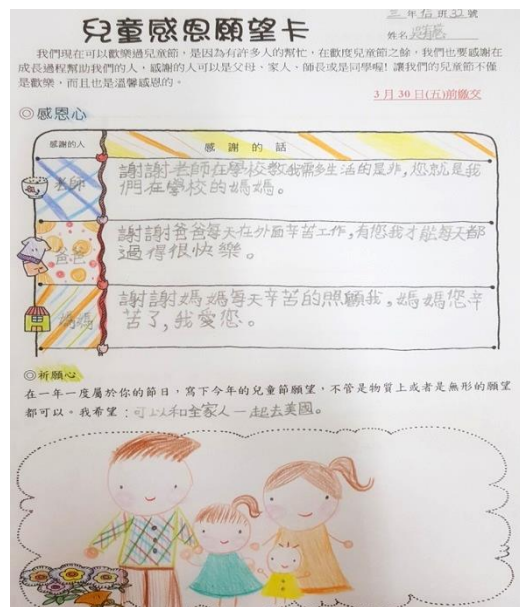 兒童感恩願望卡
三年佰班32號
姓名
我們現在可以歡樂過兒童節，是因為有許多人的幫忙，在歡度兒童節之餘，我們也要感謝在
成長過程幫助我們的人，感謝的人可以是父母、家人、師長或是同學喔！讓我們的兒童節不僅
是歡樂，而且也是溫馨感恩的。
3月30日(五)前繳交
◎感恩心
感謝的人 感謝的話
老師 謝謝老師在學校教我需多生活的是非，您就是我
們在學校的媽媽。
爸爸 謝謝爸爸每天在外面辛苦工作，有您我才能每天都
過得很快樂。
媽媽 謝謝媽媽每天辛苦的照顧我，媽媽您辛
苦了，我愛您。
◎祈願心
在一年一度屬於你的節日，寫下今年的兒童節願望，不管是物質上或者是無形的願望
都可以。我希望：可以和全家人一起去美國。